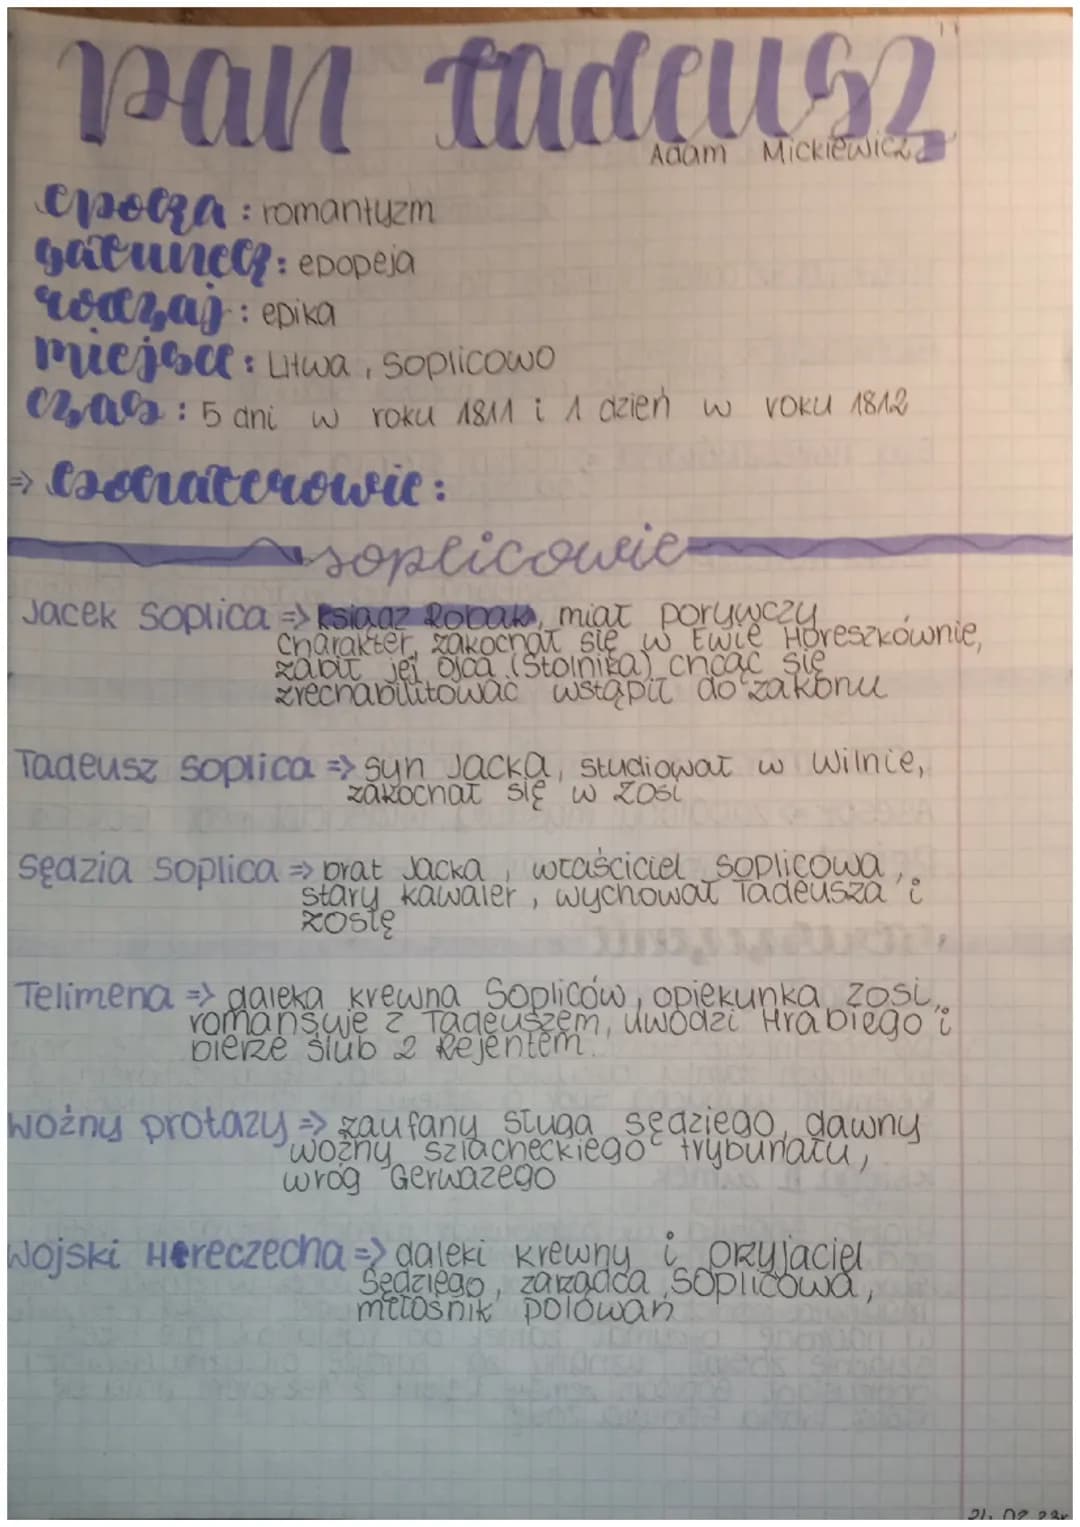 pan tadeusz
Adam Mickiewicz
epoka: romantyzm
gatunek: epopeja
rodzaj: epika
miejsce: Litwa, Soplicowo
czas: 5 dni w roku 1811 i 1 dzień w roku 1812
=> bohaterowie:
soplicowie
Jacek Soplica => Ksiądz Robak, miał porywczy
charakter, zakochał się w Ewie Horeszkównie,
zabił jej ojca (Stolnika) chcąc się
zrehabilitować wstąpił do zakonu
Tadeusz Soplica => syn Jacka, studiował w Wilnie,
zakochał się w Zosi
Sędzia Soplica => brat Jacka, właściciel Soplicowa,
stary kawaler, wychował Tadeusza i
Zosię
Telimena => daleka krewna Sopliców, opiekunka Zosi,
romansuje z Tadeuszem, uwodzi Hrabiego i
bierze ślub z Rejentem.
Woźny protazy => zaufany sługa sędziego, dawny
woźny szlacheckiego trybunału,
wróg Gerwazego
Wojski Hereczecha => daleki krewny i przyjaciel
Sędziego, zarządca Soplicowa,
miłośnik polowań